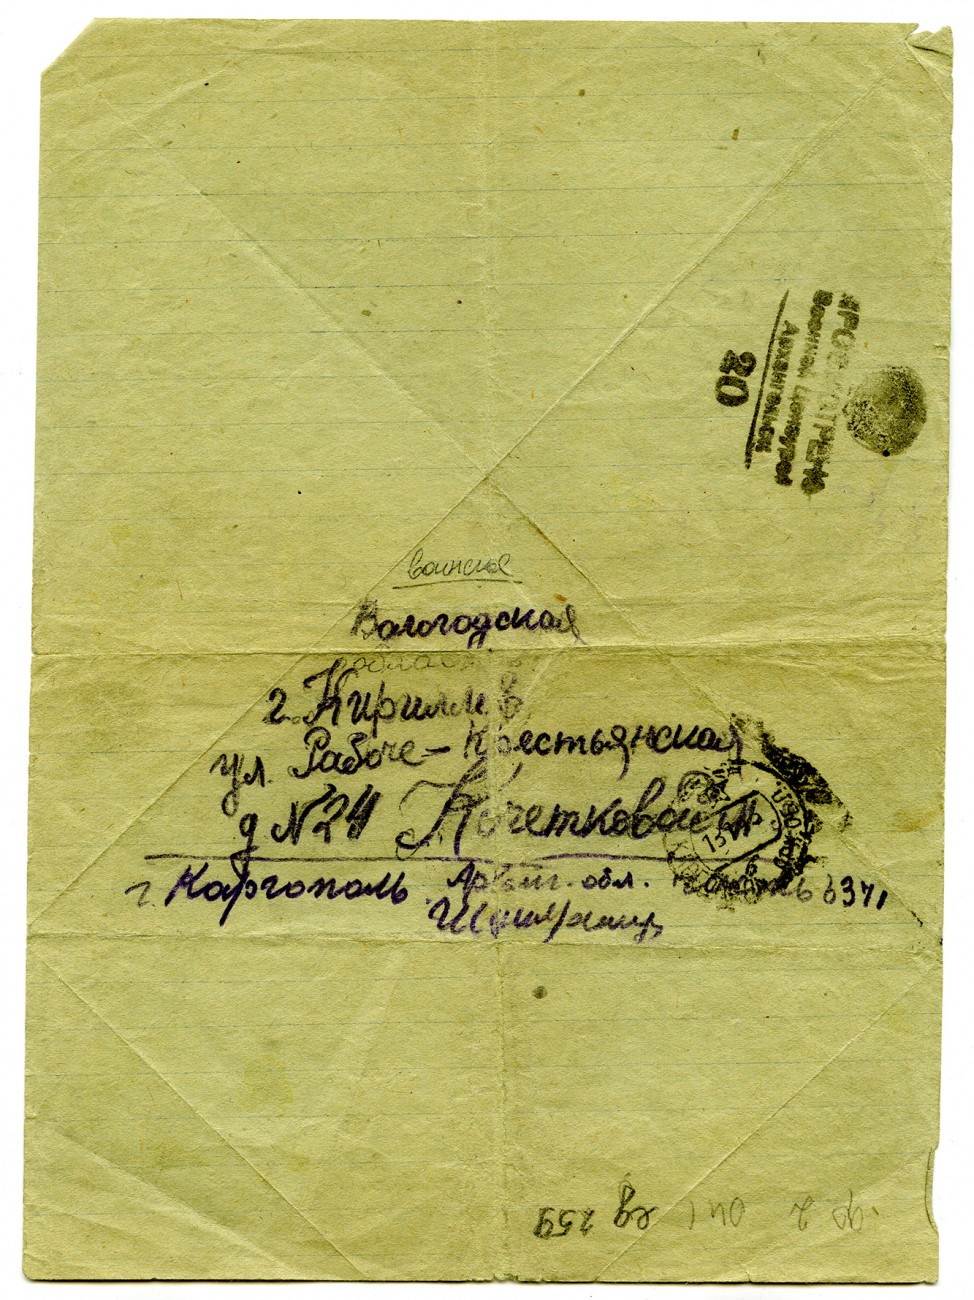 ПРОСМОТРЕНО
Военной Цензурой
Архангельск
20
воинское
Вологодская
область
г. Кириллов
ул. Рабоче-Крестьянская
д №24 Кочетковой
г. Каргополь Арханг. обл. часть 6371
оп 1 ед 259